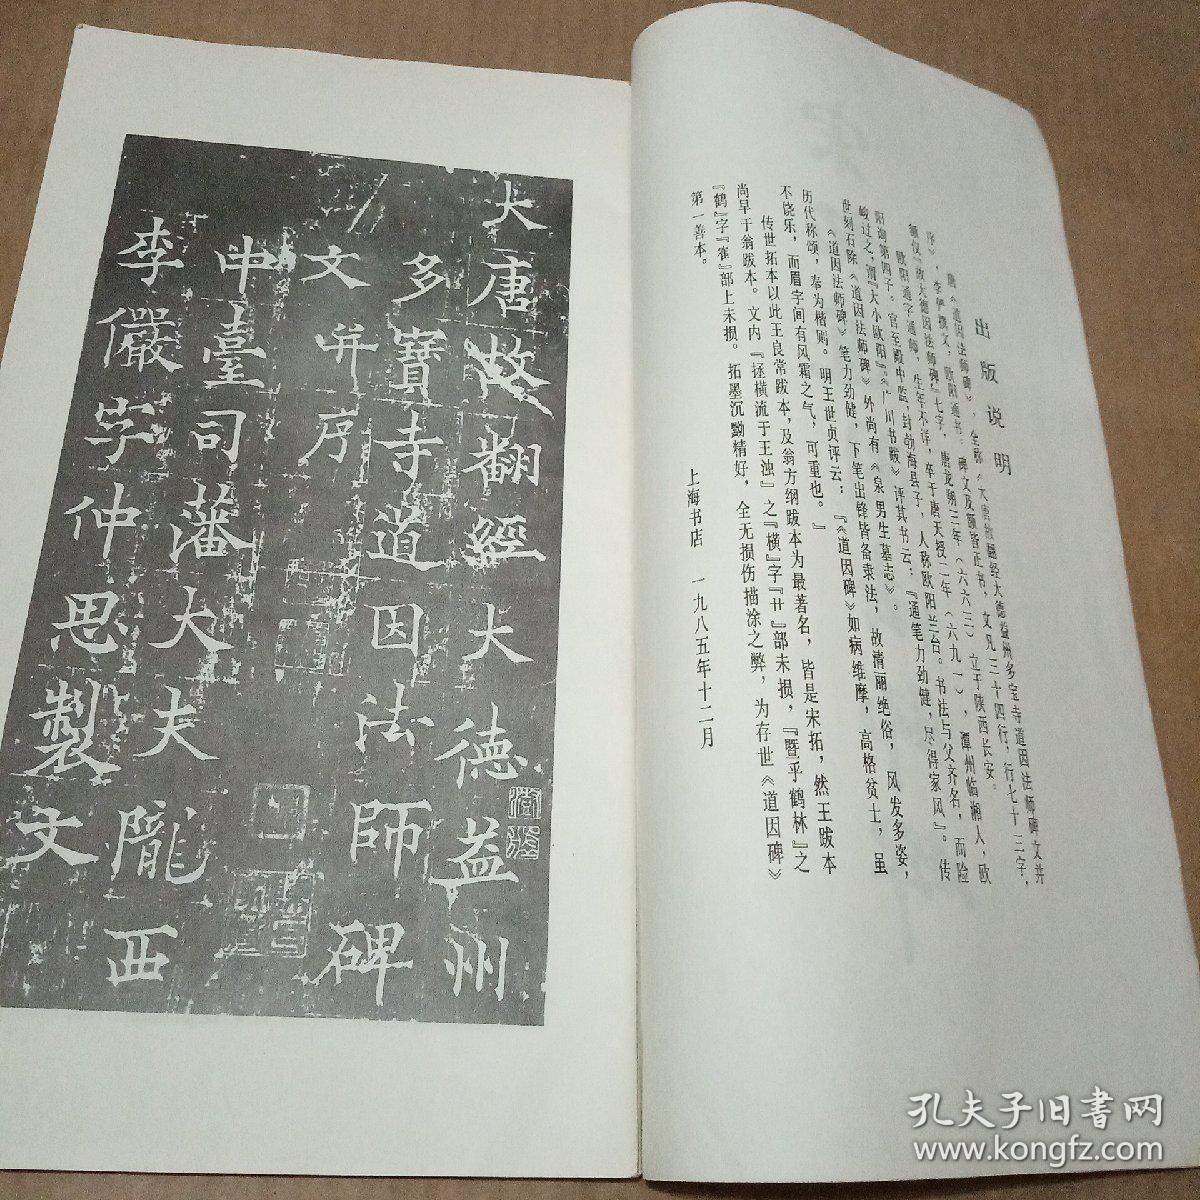 出版说明
唐《道因法师碑》，全称《大唐故翻经大德益州多宝寺道因法师碑文并
序》，李俨撰文，欧阳通书。碑文及额皆正书，文凡三十四行，行七十三字，
额仅『故大德因法师碑』七字，唐龙朔三年（六六三）立于陕西长安。
欧阳通字通师，生年不详，卒于唐天授二年（六九一），潭州临湘人，欧
阳询第四子。官至殿中监，封勃海县子，人称欧阳兰台。书法与父齐名，而险
峻过之，谓『大小欧阳』。《广川书跋》评其书云：『通笔力劲健，尽得家风』。传
世刻石除《道因法师碑》外尚有《泉男生墓志》。
《道因法师碑》笔力劲健，下笔出锋皆备隶法，故清丽绝俗，风发多姿，
历代称颂，奉为楷则。明王世贞评云：『《道因碑》如病维摩，高格贫士，虽
不饶乐，而眉宇间有风霜之气，可重也。』
传世拓本以此王良常跋本，及翁方纲跋本为最著名，皆是宋拓，然王跋本
尚早于翁跋本。文内『拯横流于王浊』之『横』字『廿』部未损，『暨乎鹤林』之
『鹤』字『隺』部上未损。拓墨沉黝精好，全无损伤描涂之弊，为存世《道因碑》
第一善本。
上海书店 一九八五年十二月
大唐故翻經大德益州
多寶寺道因法師碑
文并序
中臺司藩大夫隴西
李儼字仲思製文
孔夫子旧书网
www.kongfz.com